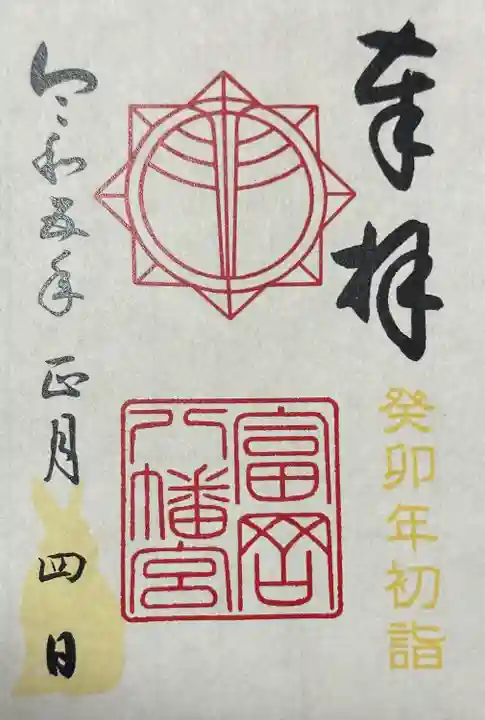 奉拝
癸卯年初詣
富岡
八幡宮
令和五年正月四日